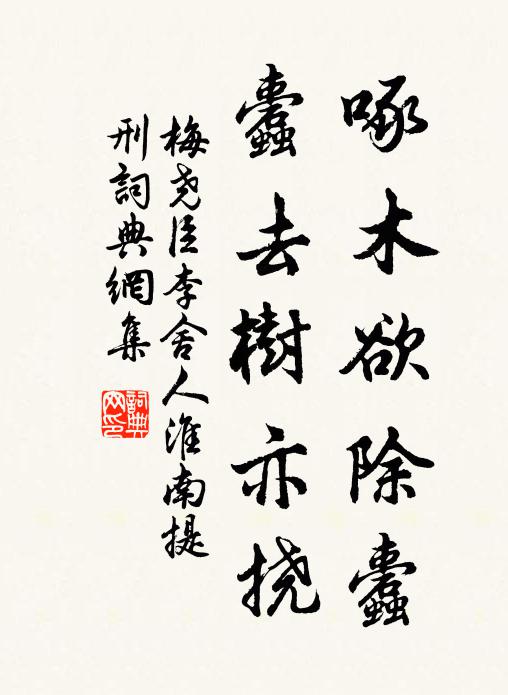 啄木欲除蠹
蠹去樹亦挠
梅尧臣李舍人淮南提
刑詞典網集
詞典
网印